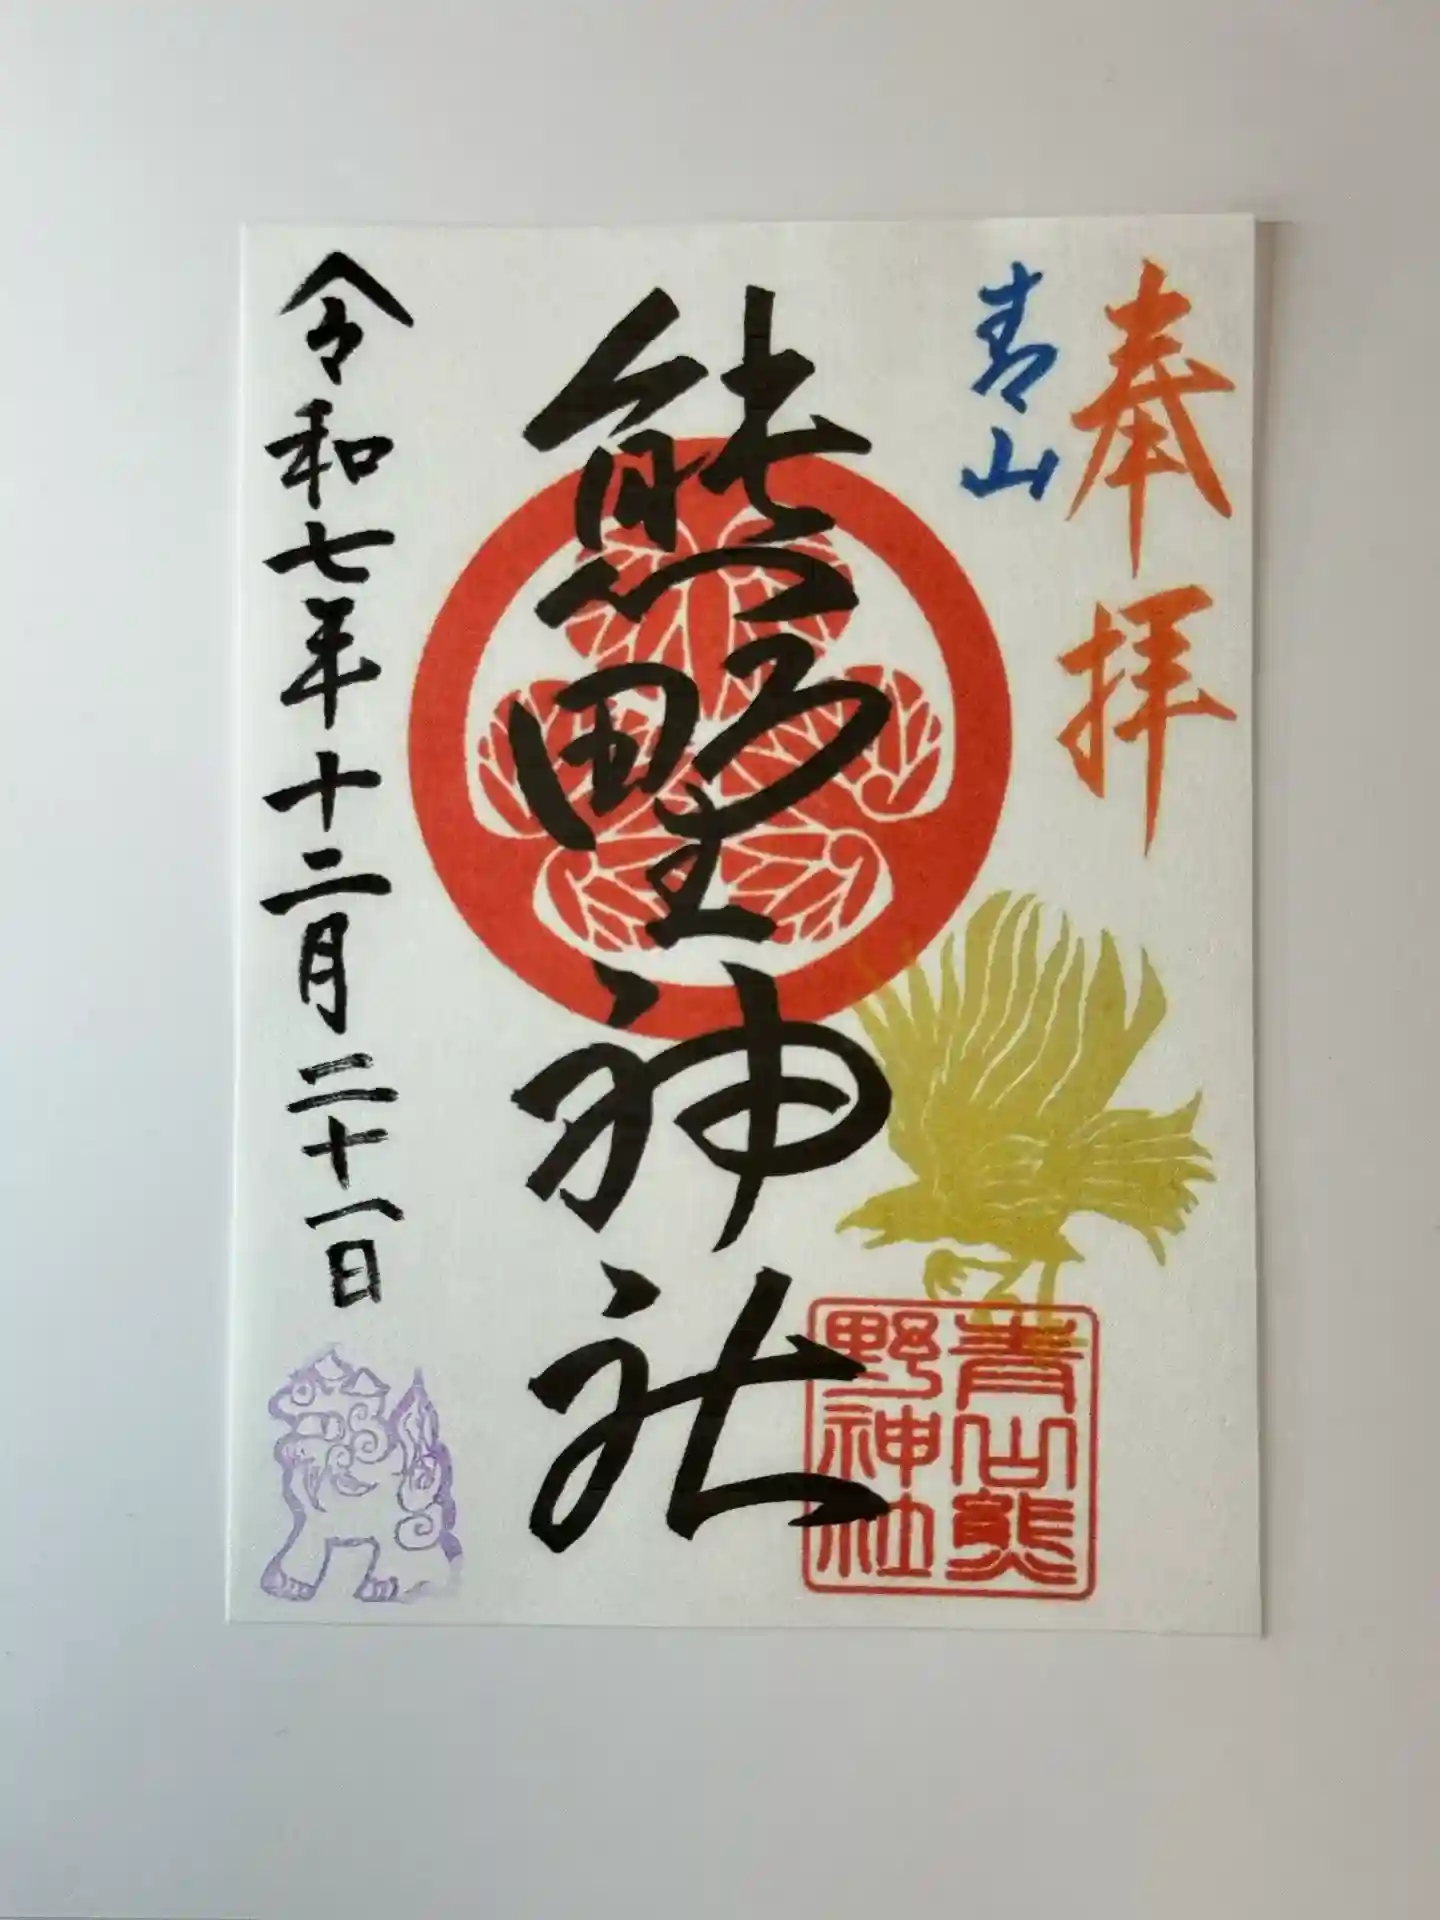 奉拝
青山
熊野神社
青山熊
野神社
令和七年十二月二十一日